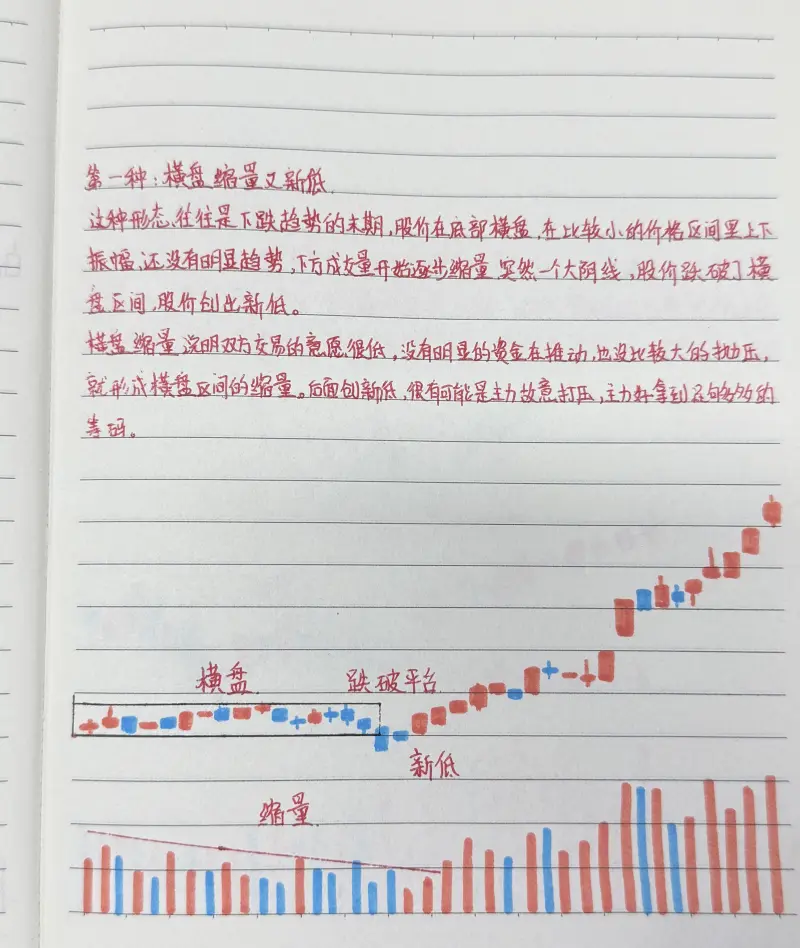 第一种:横盘缩量又新低
这种形态,往往是下跌趋势的末期,股价在底部横盘,在比较小的价格区间里上下
振幅,还没有明显趋势,下方成交量开始逐步缩量 突然一个大阴线,股价跌破了横
盘区间,股价创出新低。
横盘缩量 说明双方交易的意愿很低,没有明显的资金在推动,也没比较大的抛压,
就形成横盘区间的缩量。后面创新低,很有可能是主力故意打压,主力好拿到足够多的
筹码。
横盘 跌破平台
新低
缩量